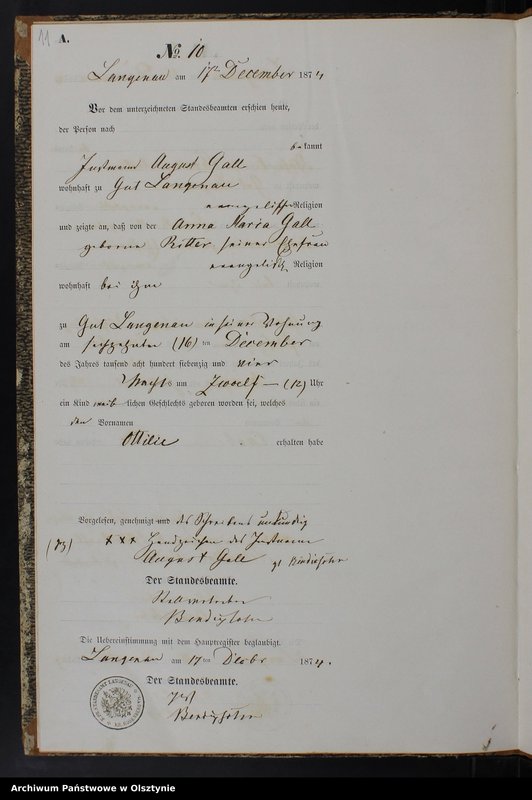 11
A.
No. 10
Langenau am 17ten December 1874
Vor dem unterzeichneten Standesbeamten erschien heute,
der Person nach
bekannt
Instmann August Gall
wohnhaft zu Gut Langenau
evangelischer Religion
und zeigte an, daß von der Anna Maria Gall
geborene Ritter seiner Ehefrau
evangelisch Religion
wohnhaft bei ihm
zu Gut Langenau in seiner Wohnung
am sechzehnten (16) ten December
des Jahres tausend acht hundert siebenzig und vier
Nachts um Zwoelf — (12) Uhr
ein Kind weiblichen Geschlechts geboren worden sei, welches
den Vornamen
Ottilie erhalten habe
Vorgelesen, genehmigt und des Schreibens unkundig
xxx Handzeichen des Instmann
August Gall
Der Standesbeamte.
Die Uebereinstimmung mit dem Hauptregister beglaubigt.
Langenau am 17 ten Decbr 1874.
Der Standesbeamte.
Archiwum Państwowe w Olsztynie